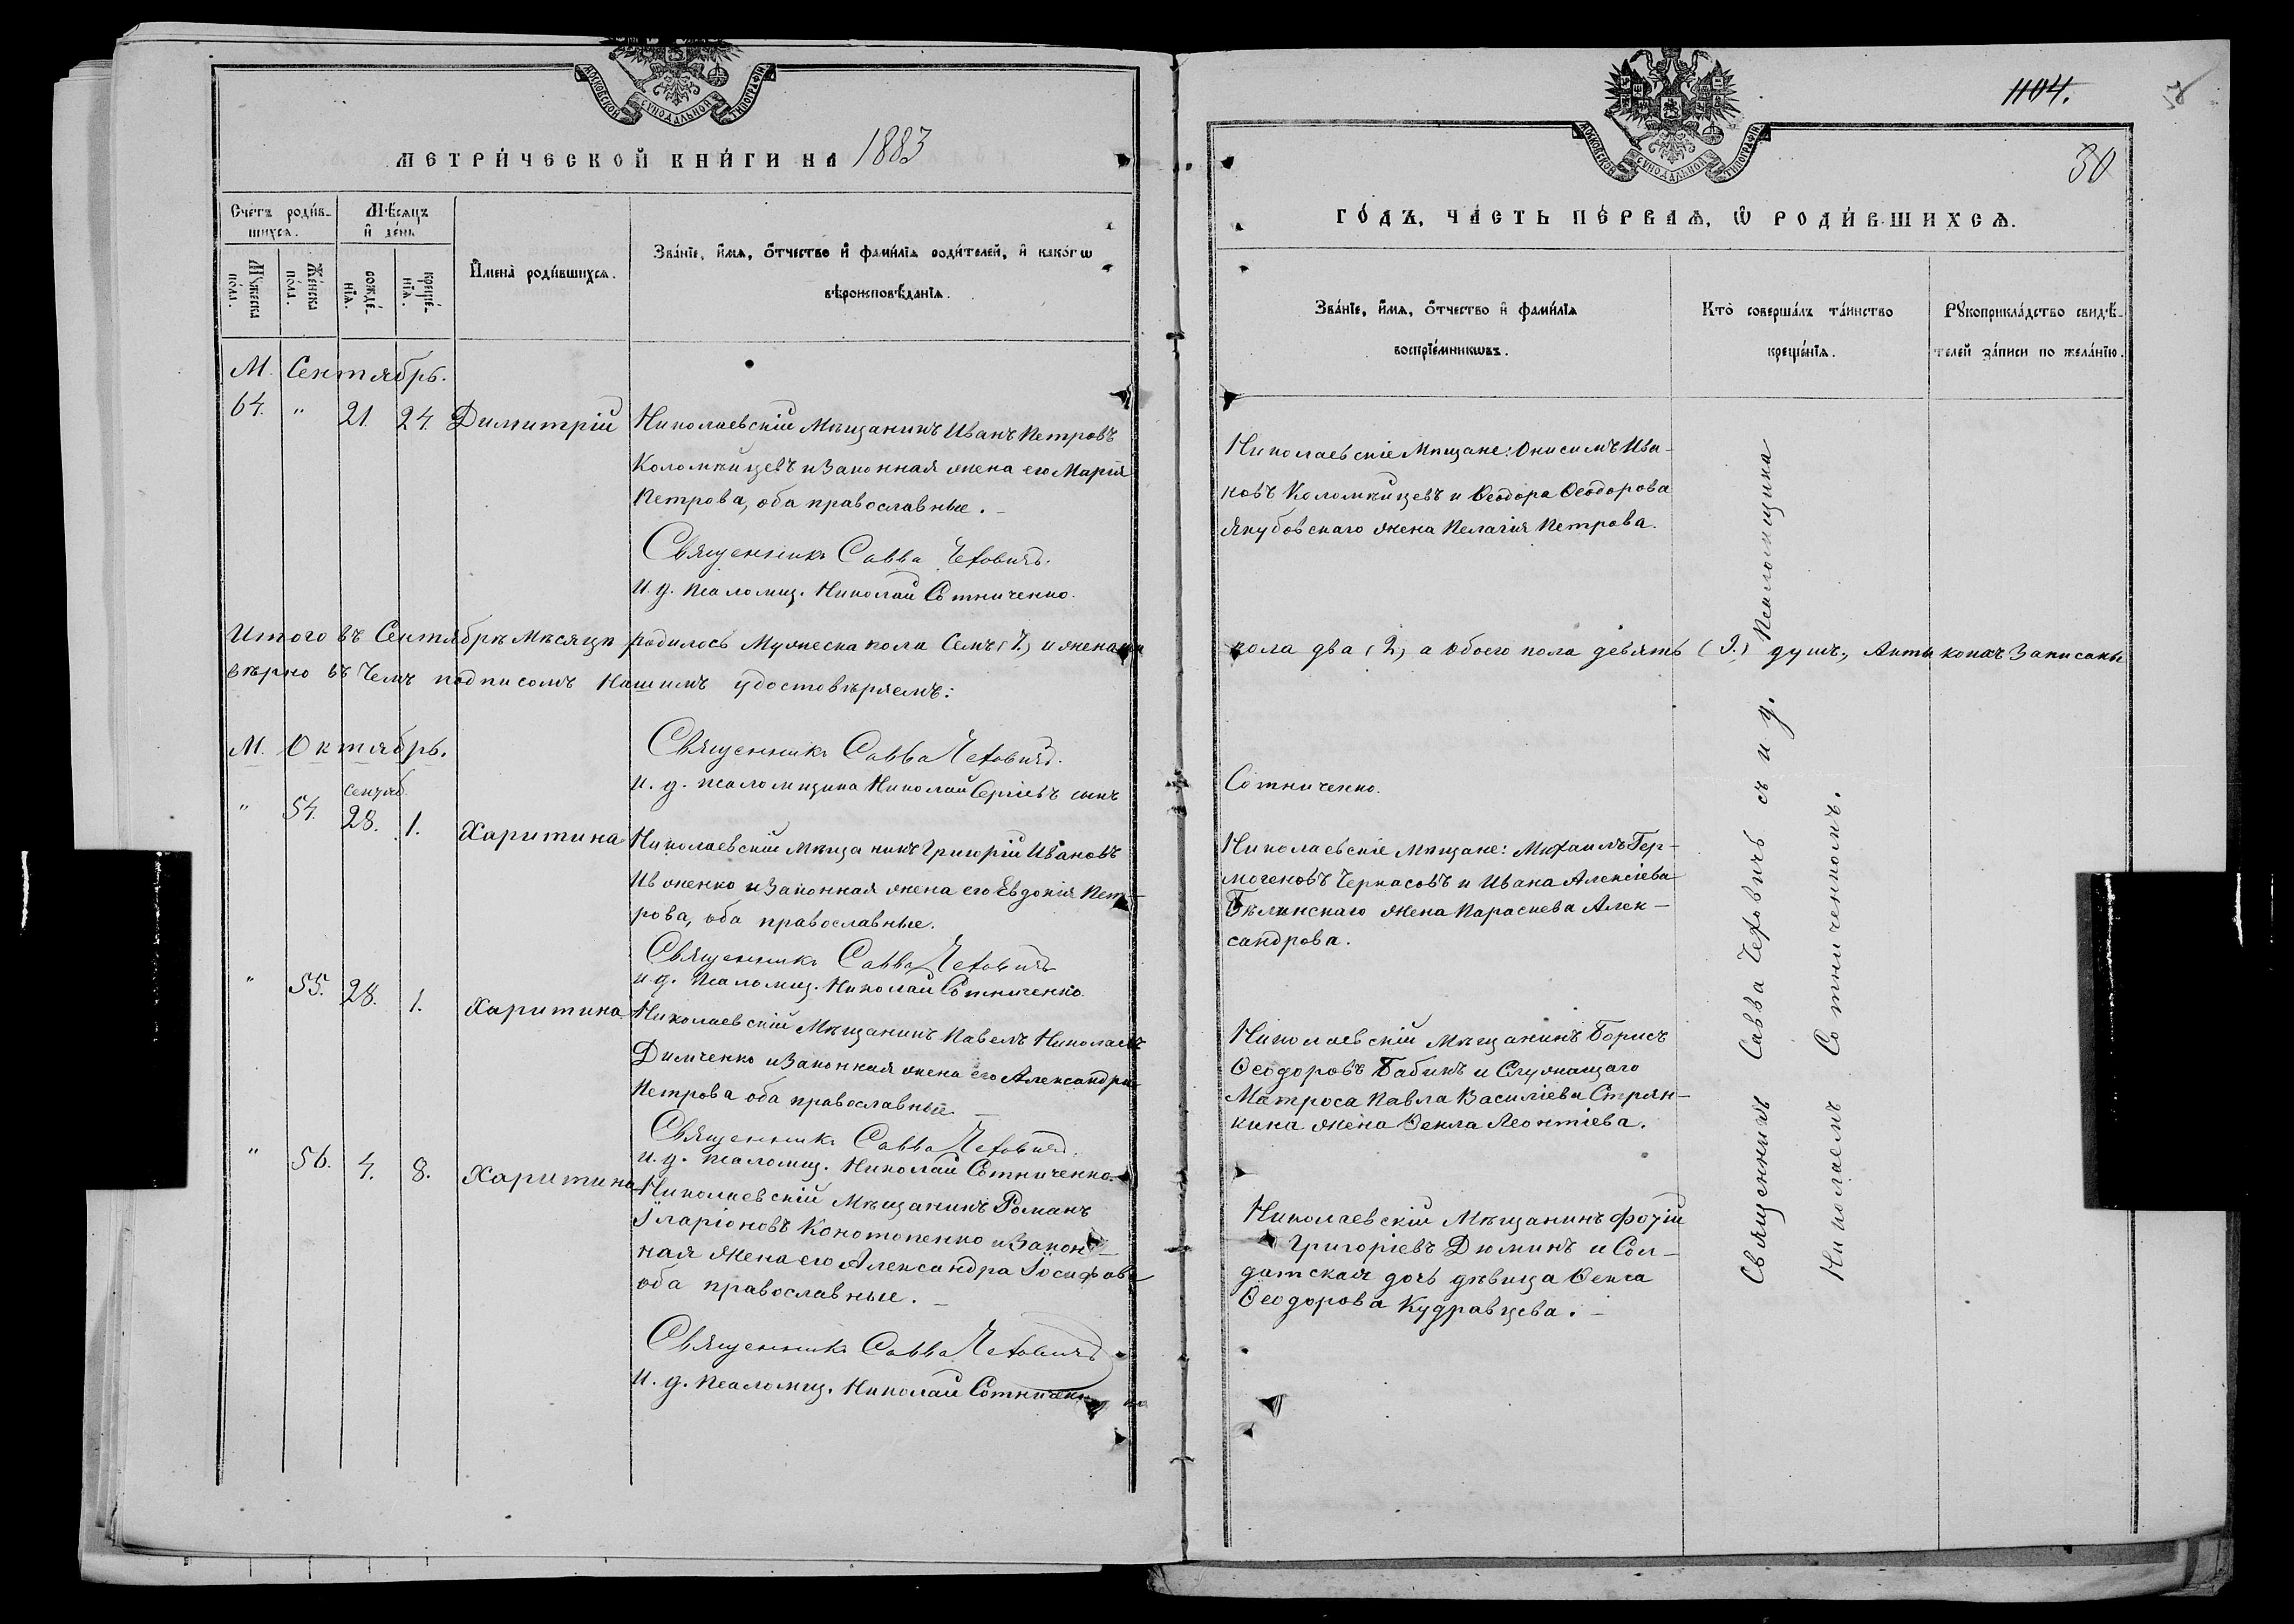 МОСКОВСКОЙ СѴНОДАЛЬНОЙ ТИПОГРАФІИ
МЕТРИ́ЧЕСКОЙ КНИ́ГИ НА 1883
Сче́тъ роди́в-
шихсѧ.
Мѣ́сѧцъ
и҆ де́нь
Мꙋ́жеска
по́ла.
Же́нска
по́ла.
рожде́-
нїѧ.
креще́-
нїѧ.
И҆мена̀ роди́вшихсѧ.
Зва́нїе, и҆́мѧ, ѻ҆́тчество и҆ фами́лїѧ роди́телей, и҆ како́гѡ
вѣроисповѣ́данїѧ.
М. Сентябрь.
64. " 21. 24. Димитрій
Николаевскій Мѣщанинъ Иванъ Петровъ
Коломѣйцевъ и Законная жена его Марія
Петрова, оба православные. –
Священникъ Савва Чехович.
И. д. псаломщ. Николай Сотниченко.
Итого въ Сентябрѣ Мѣсяцѣ родилось Мужеска пола Семь (7) и женска
вѣрно въ Чемъ подписомъ Нашимъ удостовѣряемъ:
Священникъ Савва Чехович.
и. д. псаломщика Николай Сергіевъ сынъ
М. Октябрь.
сентяб.
" 54. 28. 1. Харитина
Николаевскій мѣщанинъ Григорій Ивановъ
Ивженко и Законная жена его Евдокія Пет-
рова, оба православные.
Священникъ Савва Чехович
и д. Псаломщ. Николай Сотниченко.
" 55. 28. 1. Харитина
Николаевскій Мѣщанинъ Павелъ Николаевъ
Димченко и Законная жена его Александра
Петрова оба православные –
Священникъ Савва Чехович.
и. д. псаломщ. Николай Сотниченко.
" 56. 4. 8. Харитина
Николаевскій Мѣщанинъ Романъ
Іларіоновъ Конотопенко и Закон-
ная жена его Александра Іосифова
оба православные. –
Священникъ Савва Чехович
И. д. Псаломщ. Николай Сотниченко
1104.
58
МОСКОВСКОЙ СѴНОДАЛЬНОЙ ТИПОГРАФІИ
30
ГО́ДЪ, ЧА́СТЬ ПЕ́РВАѦ, Ѡ҆ РОДИ́ВШИХСѦ.
Зва́нїе, и҆́мѧ, ѻ҆́тчество и҆ фами́лїѧ
воспрїе́мникѡвъ.
Кто̀ соверша́лъ та́инство
креще́нїѧ.
Рꙋкоприкла́дство свидѣ́-
телей за́писи по жела́нїю.
Николаевскіе Мѣщане: Онисимъ Ива-
новъ Коломѣйцевъ и Ѳеодора Ѳеодорова
Якубовскаго жена Пелагія Петрова.
пола два (2) а обоего пола девять (9.) душъ, Акты коихъ Записаны
Сотниченко.
Николаевскіе мѣщане: Михаилъ Гер-
могеновъ Черкасовъ и Ивана Алексіева
Бѣлинскаго жена Параскева Алек-
сандрова.
Николаевскій мѣщанинъ Борисъ
Ѳеодоровъ Бабинъ и Служащаго
Матроса Павла Василіева Стрян-
кина жена Ѳекла Леонтіева.
Николаевскій Мѣщанинъ Фотій
Григоріевъ Дюминъ и Сол-
датская дочь дѣвица Ѳекла
Ѳеодорова Кудравцева. –
Священникъ Савва Чеховичъ съ и д. Псаломщика
Николаемъ Сотниченкомъ.